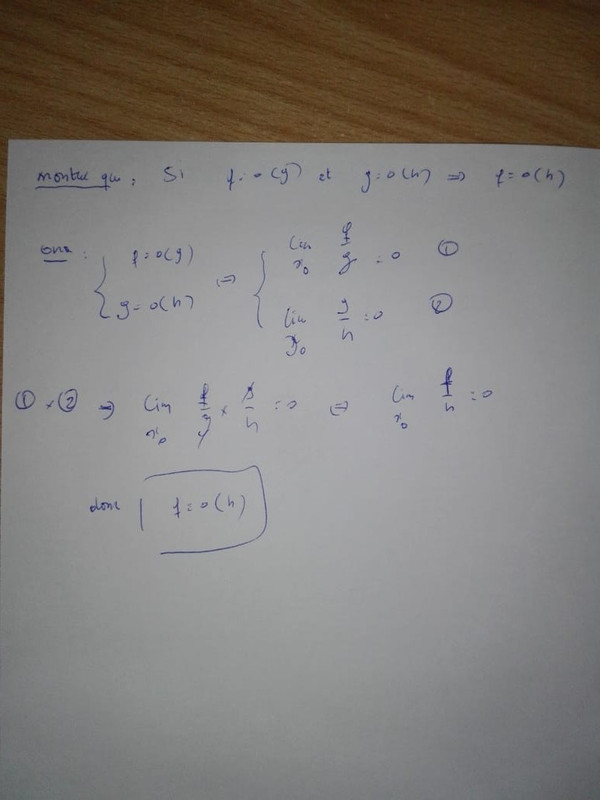 montre que : Si f = o(g) et g = o(h) ⇒ f = o(h)
ona : { f = o(g) g = o(h) ⇔ { lim x₀ f/g = 0 ① lim x₀ g/h = 0 ②
① × ② ⇒ lim x₀ f/g × g/h = 0 ⇔ lim x₀ f/h = 0
donc f = o(h)